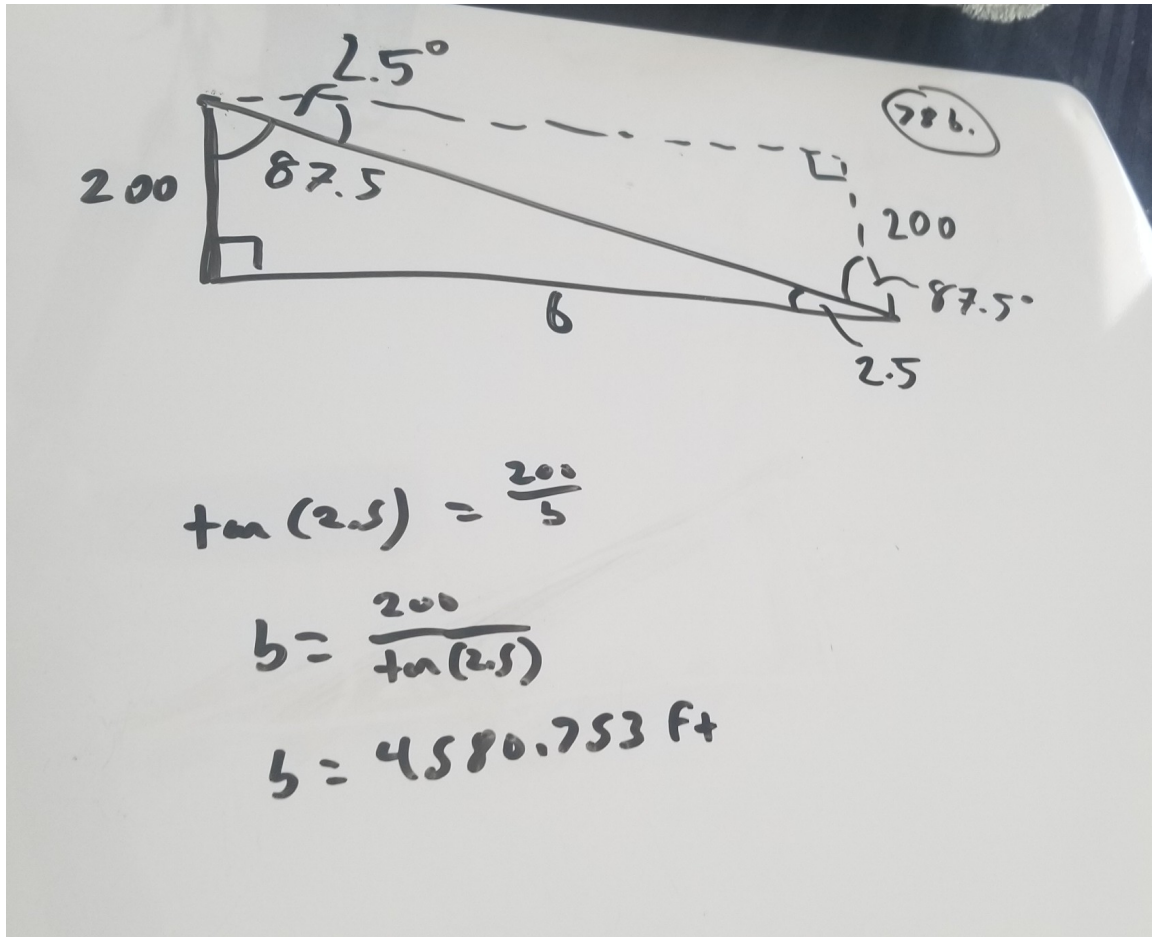 2.5°
78b.
200
87.5
200
87.5°
b
2.5
tan (2.5) = 200/b
b = 200/tan(2.5)
b = 4580.753 ft